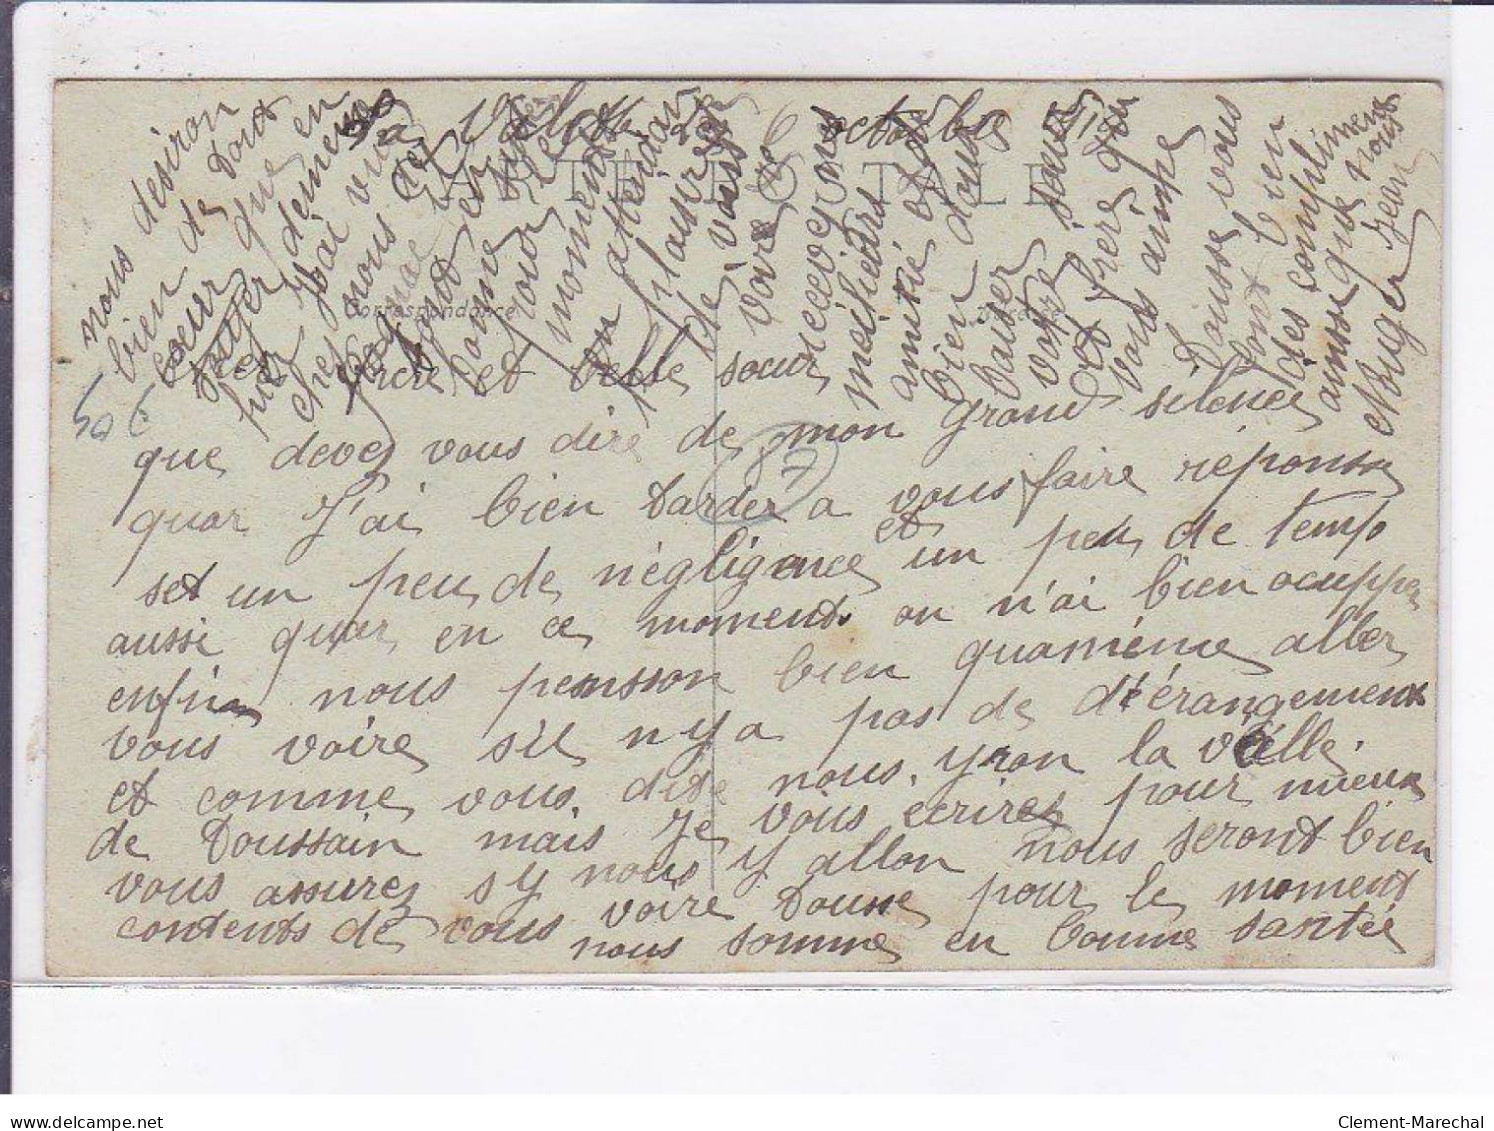 CARTE POSTALE
Correspondance
octobre
frere et belle soeur
que devez vous dire de mon grand silence
quar J'ai bien tarder a vous faire reponse
set un peu de négligence et un peu de temp
aussi quar en ce moment on n'ai bien ocupper
enfin nous pensson bien quamême aller
vous voire s'il n'y a pas de dérangement
et comme vous dite nous yron la veille
de Toussain mais je vous ecrirez pour mieux
vous assurez s y nous y allon nous seront bien
contents de vous voire Tousse pour le moment
nous somme en bonne santée
nous desiron
bien de tout
coeur que en
J'ai vu
chez nous
bonne
pour le
moment
en attendant
le plaisir
de vous
voire
recevez nos
meilieurs
amitié
bien doux
baiser
votre soeur
et frere qui
vous aimne
Tousse vous
font bien
des compliments
ainssi que nous
Jean
506
87
delcampe.net
Clement-Marechal